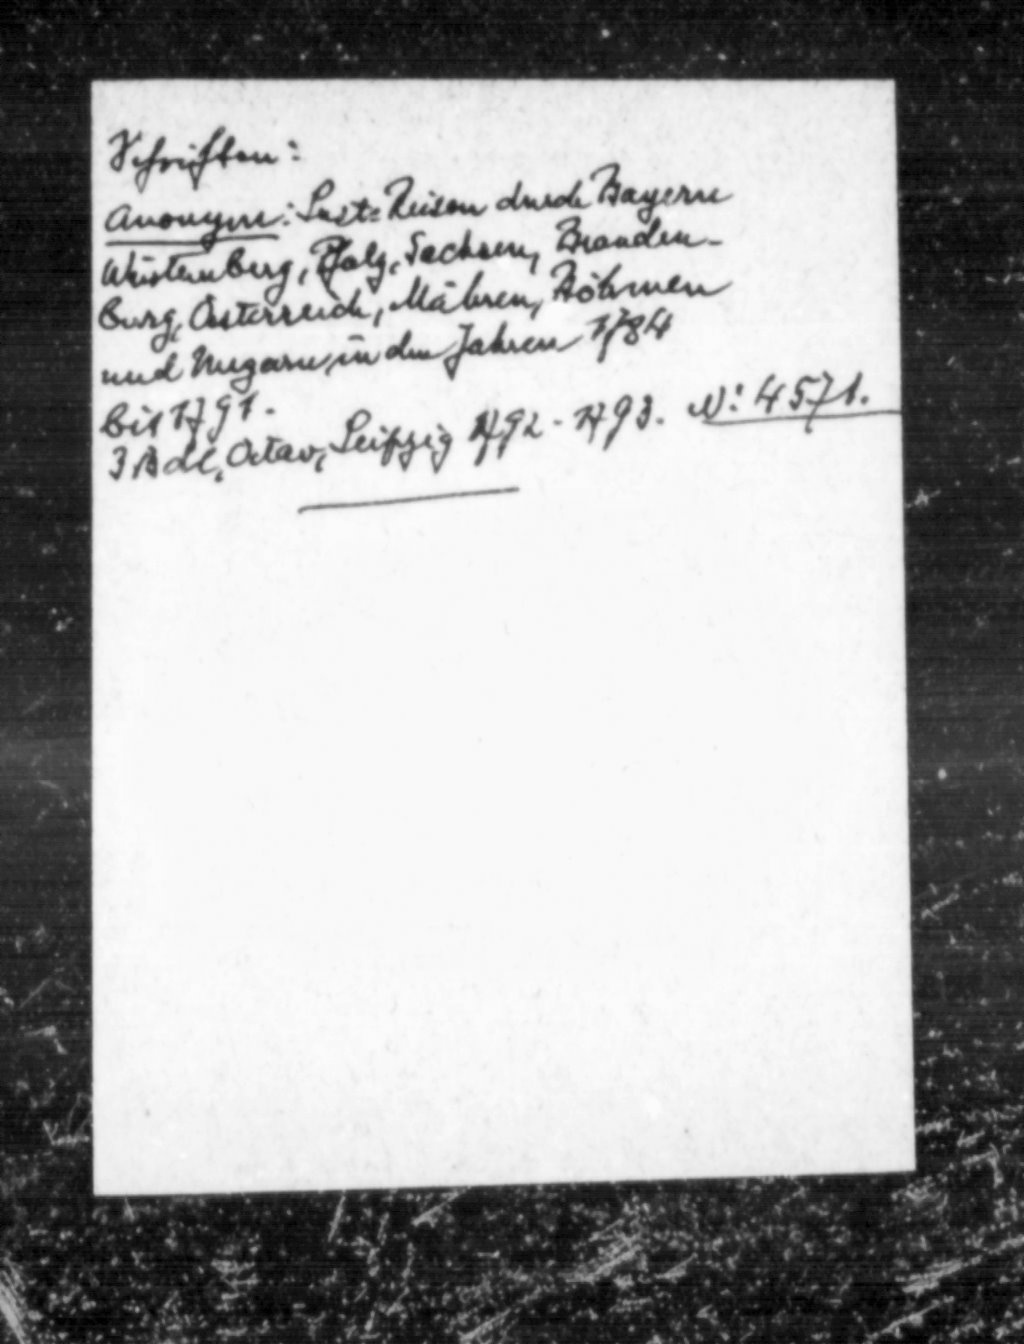 Schriften:
Anonym: Lust=Reisen durch Bayern
Württemberg, Pfalz, Sachsen, Branden-
burg, Österreich, Mähren, Böhmen
und Ungarn, in den Jahren 1784
bis 1791.
3 Bde., Octav, Leipzig 1792 - 1793. N: 4571.